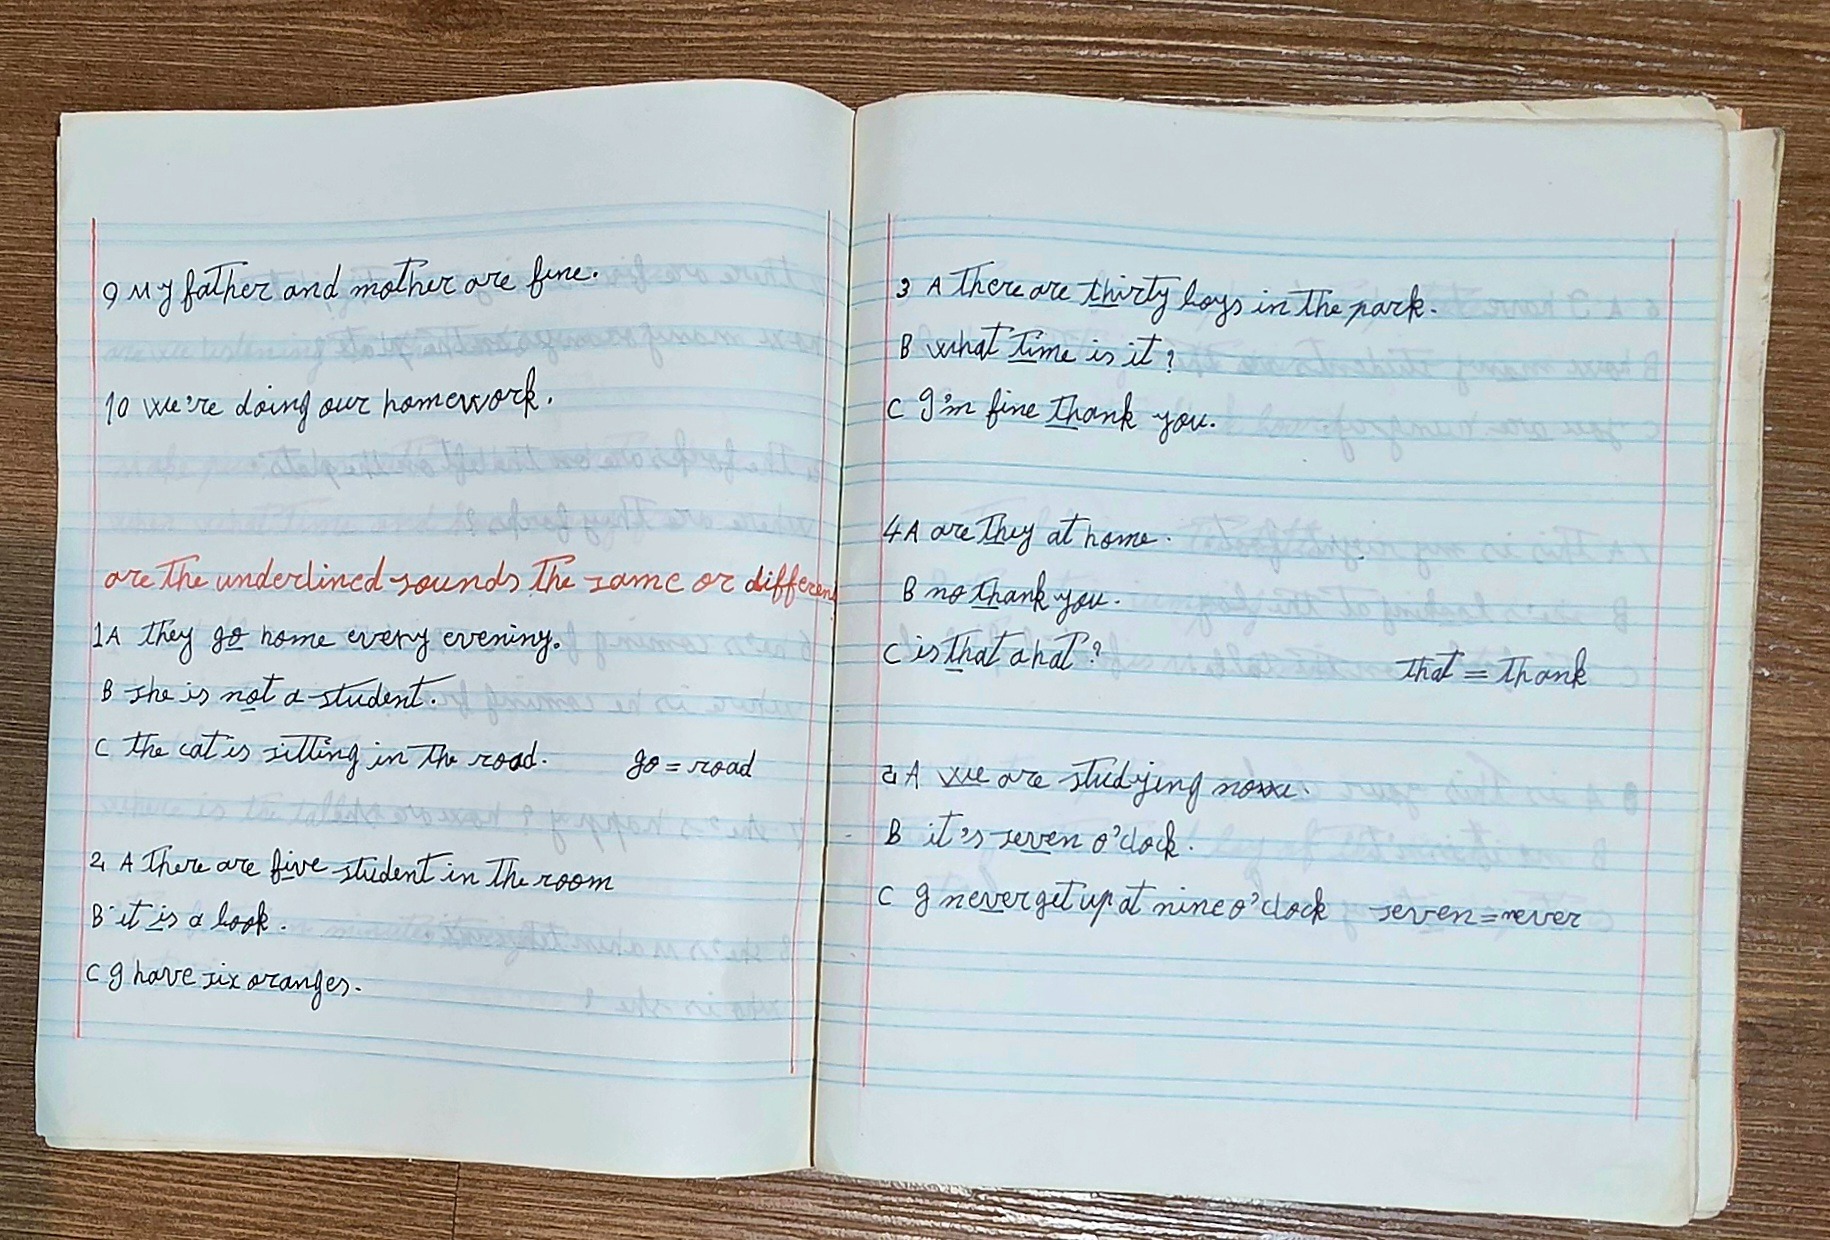 9 My father and mother are fine.
10 we're doing our homework.
are the underlined sounds the same or differen
1A they go home every evening.
B she is not a student.
C the cat is sitting in the road. go = road
2 A There are five student in the room
B it is a book.
C I have six oranges.
3 A There are thirty boys in the park.
B what time is it?
C I'm fine thank you.
4 A are they at home.
B no thank you.
C is that a hat? that = thank
A we are studying now.
B it's seven o'clock.
C I never get up at nine o'clock seven = never